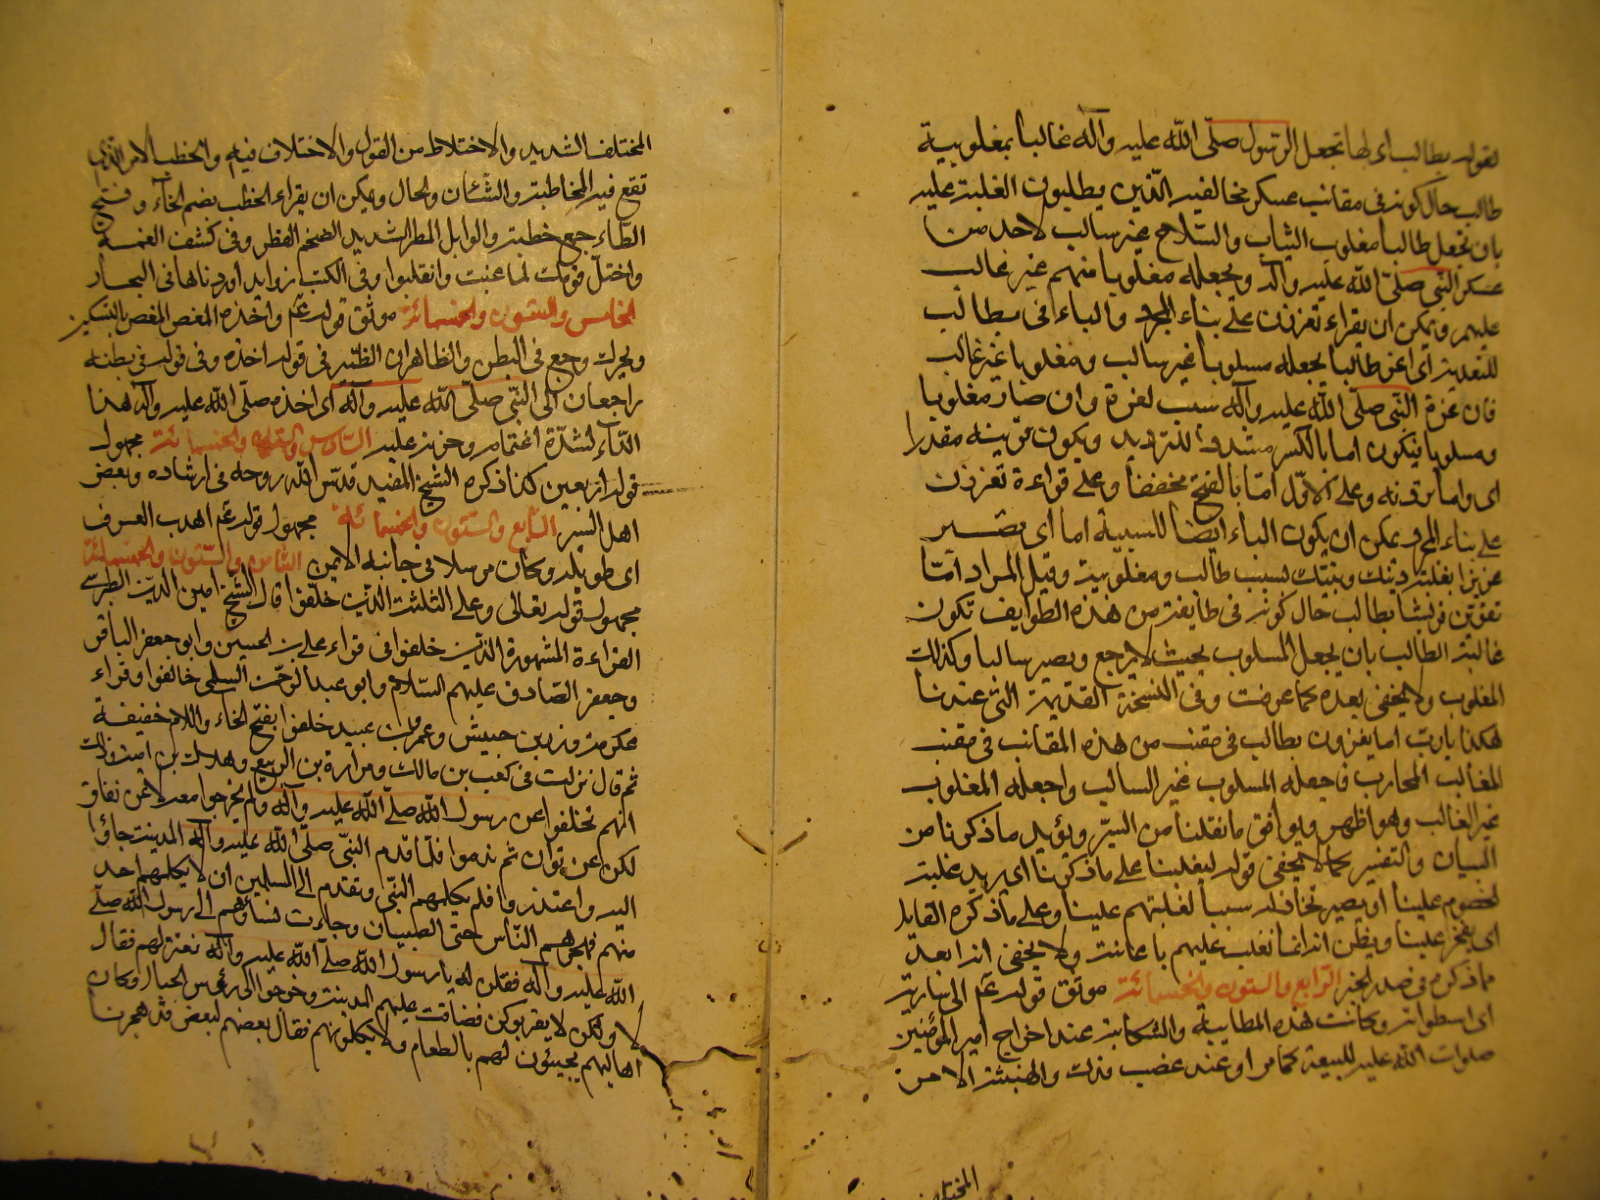 لقوله بطالب اى لها تجعل الرسول صلّى الله عليه وآله غالبا بمغلوبية
طالب حال كونه فى مقانب عسكر مخالفيه الذين يطلبون الغلبة عليه
بان تجعل طالبا مغلوب الثياب والسلاح غير سالب لاحد من
عسكر النبى صلى الله عليه وآله وتجعله مغلوبا منهم غير غالب
عليهم ويمكن ان يقراء تعززن على بناء المجرد والباء فى بطالب
للتعدية اى اعن طالبا بجعله مسلوبا غير سالب ومغلوبا غير غالب
فان عزة النبى صلّى الله عليه وآله سبب لعزة وان صار مغلوبا
ومسلوبا فيكون اما بالكسر مشددا للترديد ويكون قرينه مقدرا
اى واما وعلى الاول امّا بالفتح مخففا وعلى قراءة تعززن
على بناء المجرد يمكن ان يكون الباء ايضا للسببية اما اى
عزيزا بغلبة دينك ونبيّك بسبب طالب ومغلوبيته وقيل المراد امّا
تقوين قريشا بطالب حال كونه فى طايفة من هذه الطوايف تكون
غالبة الطالب بان يجعل المسلوب بحيث لا يرجع ويصير سالبا وكذلك
المغلوب ولا يخفى بعده كما عرفت وفى النسخة القديمة التى عندنا
هكذا يا رب اما يغزون بطالب فى مقنب من هذه المقانب فى مقنب
المغالب المحارب فاجعله المسلوب غير السالب واجعله المغلوب
غير الغالب وهو اظهر ويوافق ما نقلنا من السير ويؤيد ما ذكرنا من
البيان والتفسير كما لا يخفى قوله ليغلبنا على ما ذكرنا اى يريد غلبة
لخصوم علينا او يصير تخاذله سببا لغلبتهم علينا وعلى ما ذكره القايل
اى يفخر علينا ويظن انه انما نغلب عليهم باعانته ولا يخفى انه ابعد
مما ذكره فى صدر الخبر الرابع والستون والخمسمائة موثق قوله عم الى سارية
اى اسطوانة وكانت هذه المطالبة والشكاية عند اخراج امير المؤمنين
صلوات الله عليه للبيعة كما مر او عند غصب فدك والهنبثة الامر
المختلف
المختلف الشديد والاختلاط من القول والاختلاف فيه والخطب الامر الذى
تقع فيه المخاطبة والشّان والحال ويمكن ان يقراء الخطب بضم الخاء وفتح
الطاء جمع خطبة والوابل المطر الشديد الضخم القطر وفى كشف الغمة
واختل قومك لما غبت وانقلبوا وفى الكتب زوايد اوردناها فى البحار
الخامس والستون والخمسمائة موثق قوله عم واخذه المغص المغص بالتسكين
ويحرك وجع فى البطن والظاهر ان الضمير فى قوله اخذه وفى قوله فى بطنه
راجعان الى النبى صلى الله عليه وآله اى اخذه صلّى الله عليه وآله هذا
الدّاء لشدّة اغتمامه وحزنه عليه السادس والستون والخمسمائة مجهول
قوله اربعين كذا ذكره الشيخ المفيد قدس الله روحه فى ارشاده وبعض
اهل السير السابع والستون والخمسمائة مجهول قوله عم اهدب العرف
اى طويله وكان مرسلا فى جانبه الايمن الثامن والستون والخمسمائة
مجهول قوله تعالى وعلى الثلثة الذين خلّفوا قال الشيخ امين الدين الطبرسى
القراءة المشهورة الذين خلفوا وقراء على بن الحسين وابو جعفر الباقر
وجعفر الصادق عليهم السلام وابو عبد الرحمن السلمى خالفوا وقراء
عكرمة وزر بن حبيش وعمرو بن عبيد خلفوا بفتح الخاء واللام خفيفة
ثم قال نزلت فى كعب بن مالك ومرارة بن الربيع وهلال بن امية وذلك
انهم تخلفوا عن رسول الله صلى الله عليه وآله ولم يخرجوا معه لا عن نفاق
لكن عن توان ثم ندموا فلما قدم النبى صلّى الله عليه وآله المدينة جاؤا
اليه واعتذروا فلم يكلمهم النبى وتقدم الى المسلمين ان لا يكلمهم احد
منهم فهجرهم النّاس حتى الصبيان وجاءت نساؤهم الى رسول الله صلى
الله عليه وآله فقلن له يا رسول الله صلى الله عليه وآله نعتزلهم فقال
لا ولكن لا يقربوكن فضاقت عليهم المدينة وخرجوا الى رؤس الجبال وكان
اهاليهم يجيئون لهم بالطعام ولا يكلمونهم فقال بعضهم لبعض قد هجرنا